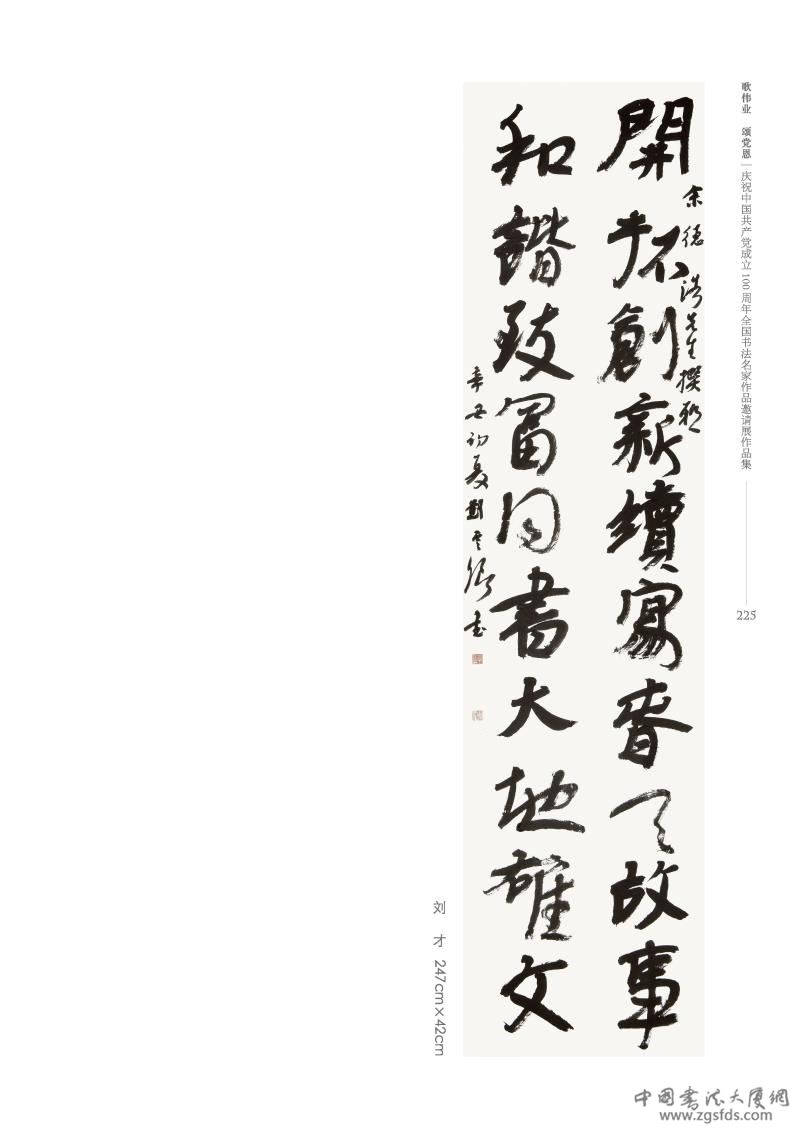 歌伟业 颂党恩 | 庆祝中国共产党成立100周年全国书法名家作品邀请展作品集
225
開拓創新續寫春天故事
余德 先生撰聯
和諧致富同書大地雄文
辛丑初夏劉 書
刘 才 247cm×42cm
中國書法大厦網
www.zgsfds.com